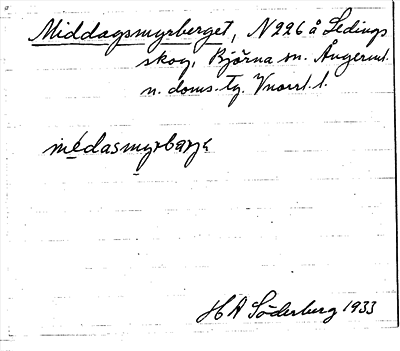 Middagsmyrberget, N 226 å Ledings
skog, Björna sn. Ångerml.
n. doms. tg. Vnorrl. l.
medasmyrbærjɛ
H A Söderberg 1933